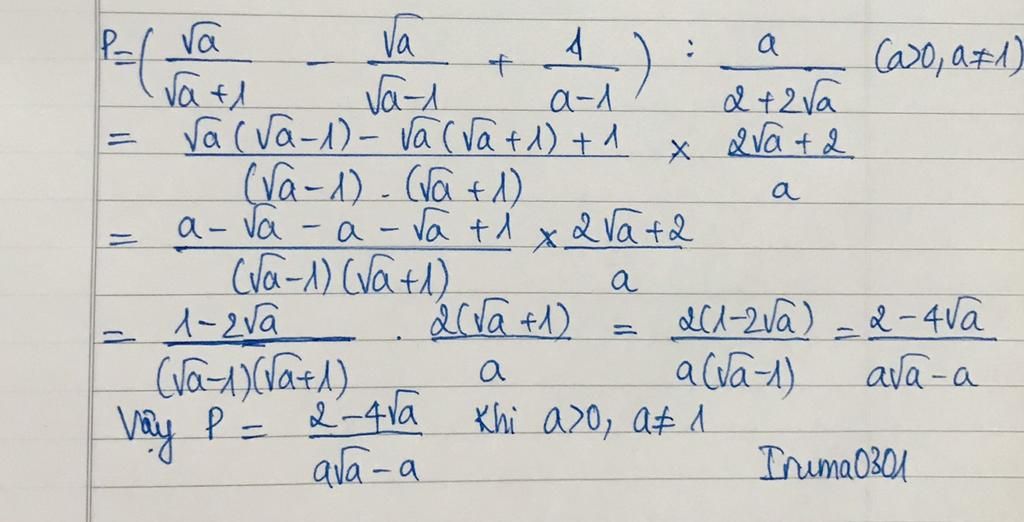 P=(√a/(√a+1) − √a/(√a−1) + 1/(a−1)) : a/(2+2√a) (a>0, a≠1)
= (√a(√a−1) − √a(√a+1) + 1)/((√a−1).(√a+1)) × (2√a+2)/a
= (a−√a−a−√a+1)/((√a−1)(√a+1)) × (2√a+2)/a
= (1−2√a)/((√a−1)(√a+1)) . 2(√a+1)/a = 2(1−2√a)/(a(√a−1)) = (2−4√a)/(a√a−a)
Vậy P = (2−4√a)/(a√a−a) Khi a>0, a≠1
Iruma0301